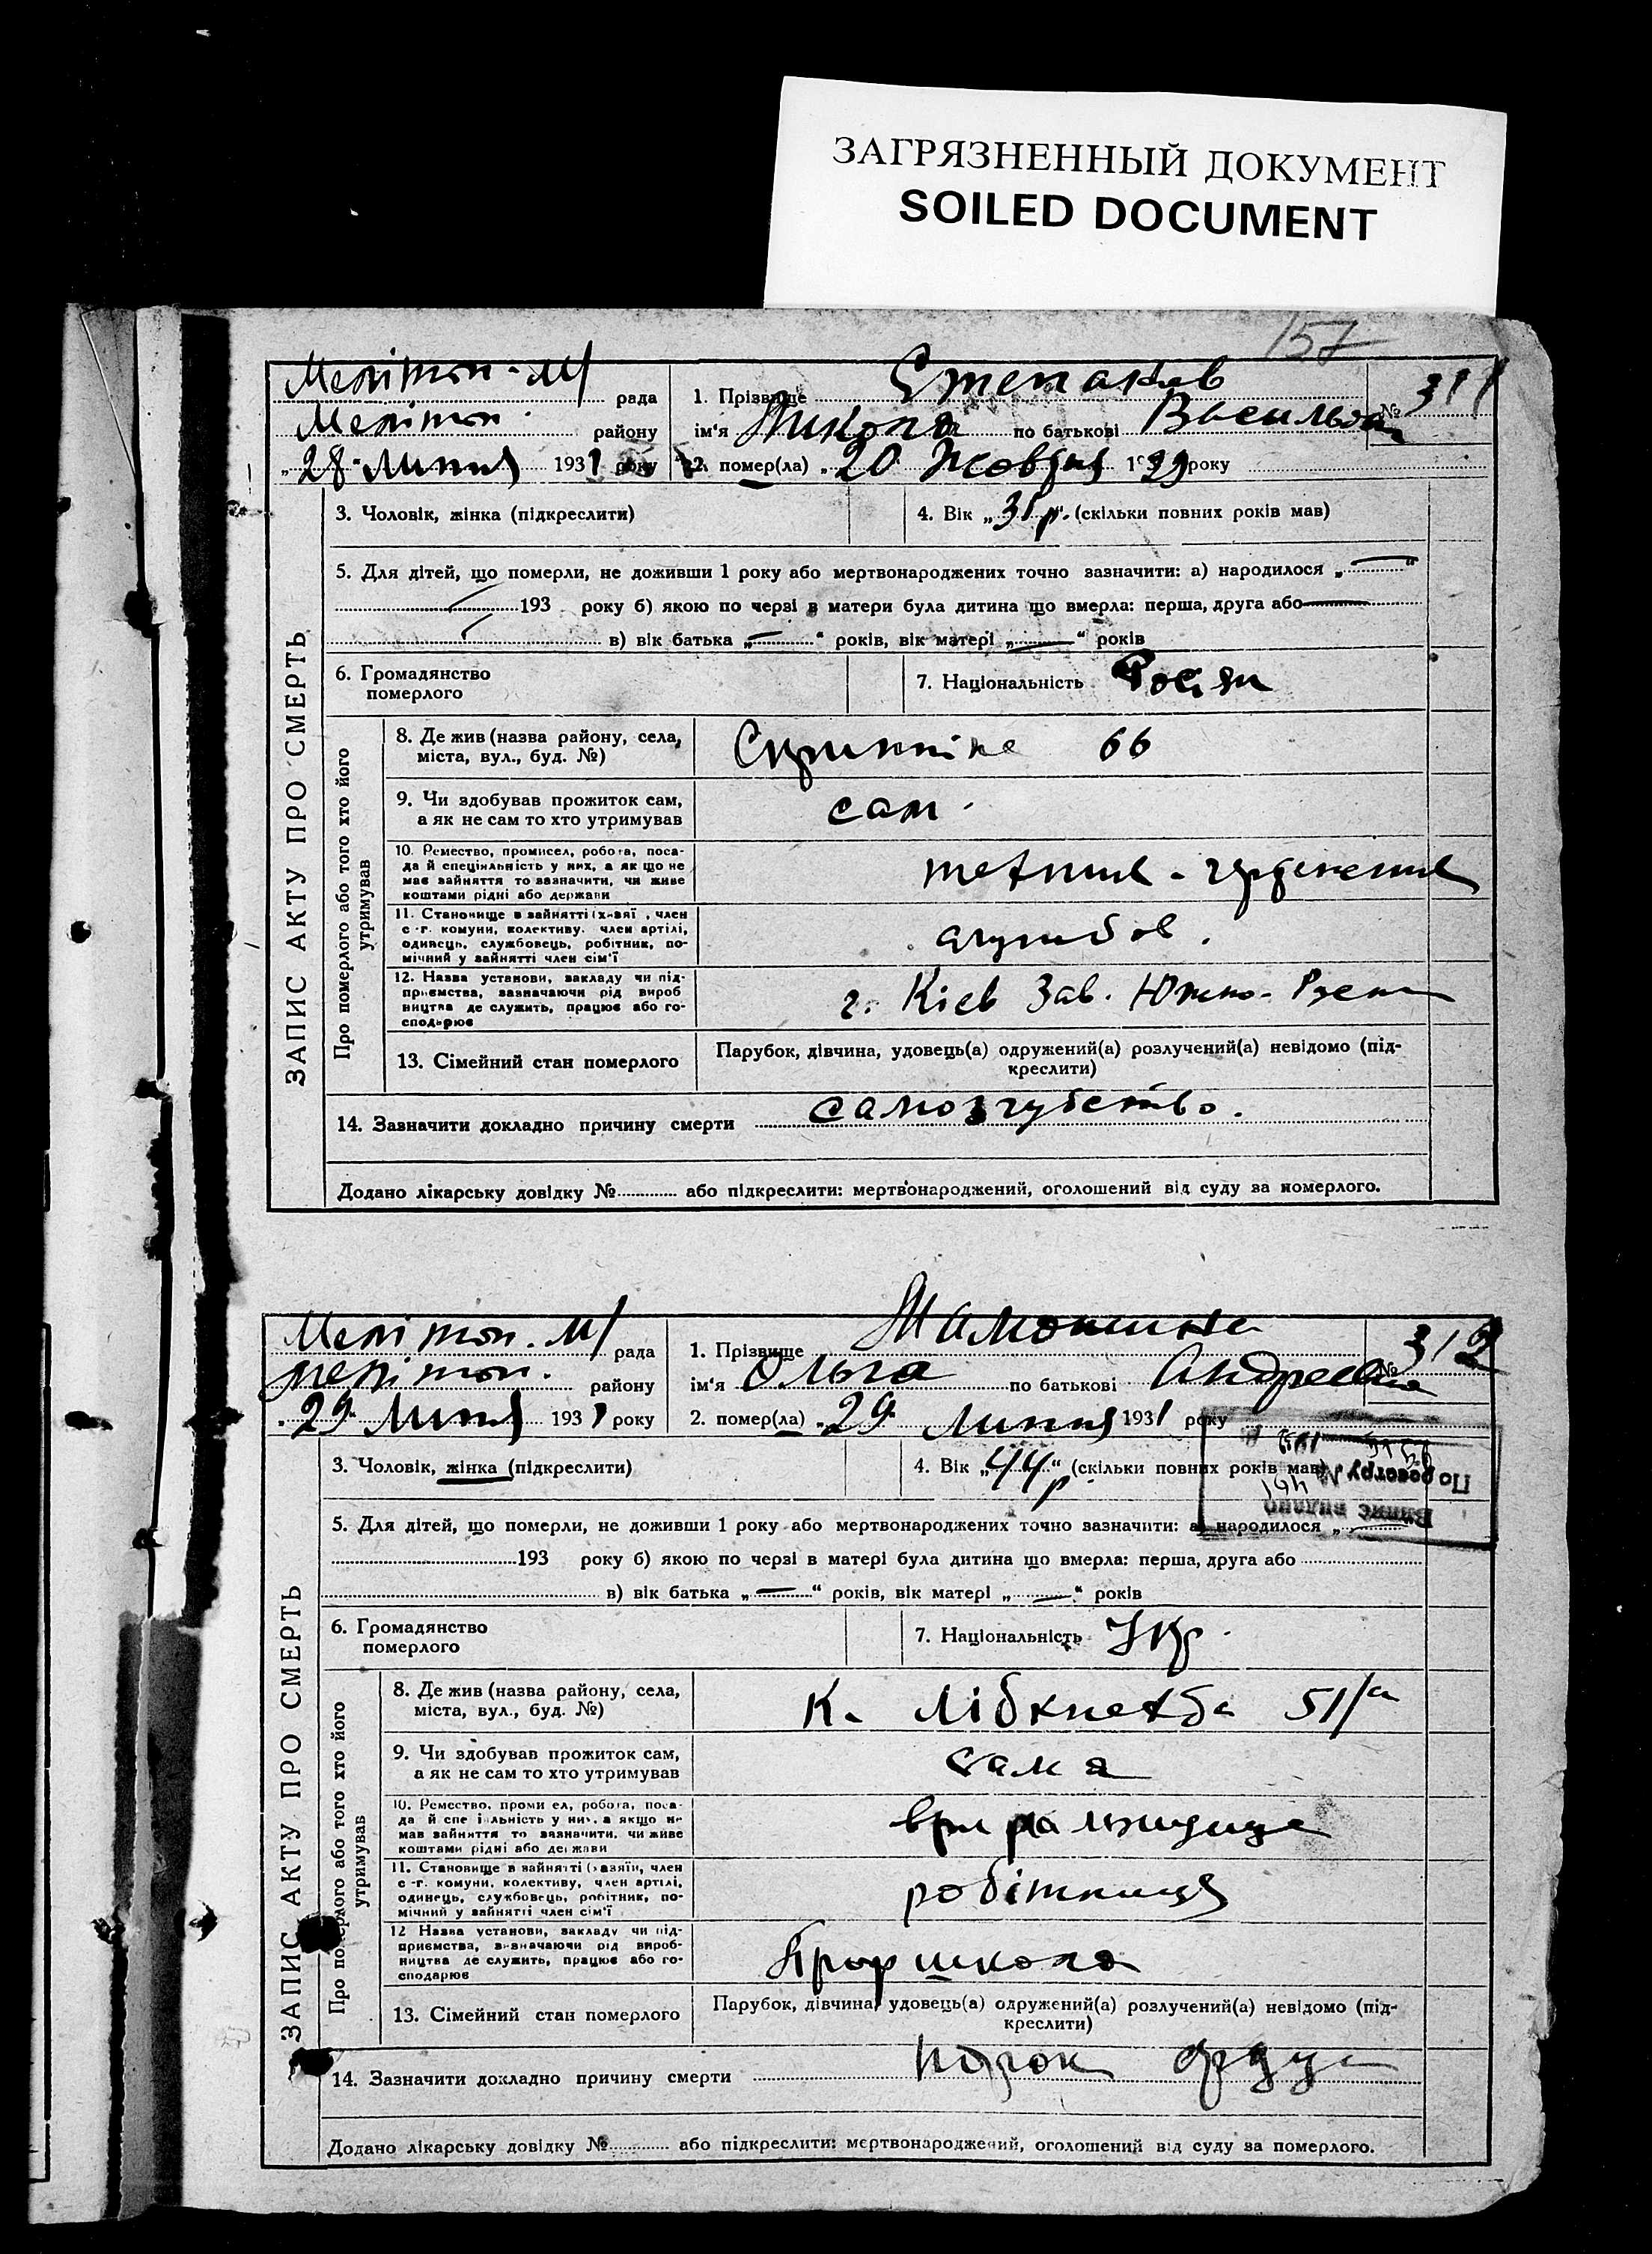 ЗАГРЯЗНЕННЫЙ ДОКУМЕНТ
SOILED DOCUMENT
157
ЗАПИС АКТУ ПРО СМЕРТЬ
Мелітоп. М/ рада
Мелітоп. району
„28" Липня 1931 року
1. Прізвище Степаков
№ 311
ім'я Микола по батькові
2. помер(ла) „20 Жовтня 1929 року
3. Чоловік, жінка (підкреслити)
4. Вік „31 р." (скільки повних років мав)
5. Для дітей, що померли, не доживши 1 року або мертвонароджених точно зазначити: а) народилося „—"
193 року б) якою по черзі в матери була дитина що вмерла: перша, друга або
в) вік батька „—" років, вік матері „—" років
6. Громадянство
померлого
7. Національність Росіян
Про померлого або того хто його
утримував
8. Де жив (назва району, села,
міста, вул., буд. №)
66
9. Чи здобував прожиток сам,
а як не сам то хто утримував
сам
10. Ремество, промисел, робота, поса-
да й спеціяльність у них, а як що не
має зайняття то зазначити, чи живе
коштами рідні або держави
технік -
11. Становище в зайнятті (хазяї, член
с-г. комуни, колективу, член артілі,
одинець, службовець, робітник, по-
мічний у зайнятті член сім'ї
службов.
12. Назва установи, закладу чи під-
приємства, зазначаючи рід вироб
ництва де служить, працює або го-
сподарює
г. Кіев Зав. Южно-
13. Сімейний стан померлого
Парубок, дівчина, удовець(а) одружений(а) розлучений(а) невідомо (під-
креслити)
14. Зазначити докладно причину смерти самозгубство.
Додано лікарську довідку № або підкреслити: мертвонароджений, оголошений від суду за померлого.
ЗАПИС АКТУ ПРО СМЕРТЬ
Мелітоп. М/ рада
Мелітоп. району
„29" Липня 1931 року
1. Прізвище
№ 312
ім'я Ольга по батькові Андреевна
2. помер(ла) „29" Липня 1931 року
3. Чоловік, жінка (підкреслити)
4. Вік „44 р" (скільки повних років мав)
Випис видано
По реєстру № 461
5. Для дітей, що померли, не доживши 1 року або мертвонароджених точно зазначити: а) народилося „
193 року б) якою по черзі в матері була дитина що вмерла: перша, друга або
в) вік батька „—" років, вік матері „—" років
6. Громадянство
померлого
7. Національність Укр.
Про померлого або того хто його
утримував
8. Де жив (назва району, села,
міста, вул., буд. №)
К. Лібкнехта 51/а
9. Чи здобував прожиток сам,
а як не сам то хто утримував
сама
10. Ремество, промисел, робота, поса-
да й спеціяльність у них, а якщо не
мав зайняття то зазначити, чи живе
коштами рідні або держави
11. Становище в зайнятті (хазяїн, член
с-г. комуни, колективу, член артілі,
одинець, службовець, робітник, по-
мічний у зайнятті член сім'ї
робітниця
12 Назва установи, закладу чи під-
приємства, зазначаючи рід вироб-
ництва де служить, працює або го-
сподарює
Проф школа
13. Сімейний стан померлого
Парубок, дівчина, удовець(а) одружений(а) розлучений(а) невідомо (під-
креслити)
14. Зазначити докладно причину смерти
Додано лікарську довідку № або підкреслити: мертвонароджений, оголошений від суду за померлого.